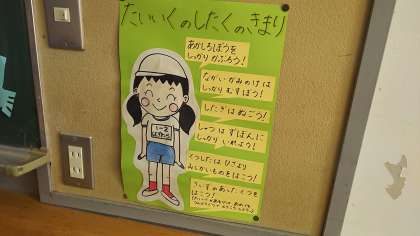 たいいくのしたくのきまり
あかしろぼうを
しっかりかぶろう！
ながいかみのけは
しっかりむすぼう！
したぎはぬごう！
しゃつはずぼんに
しっかりいれよう！
くつしたはひざより
みじかいものをはこう！
さいずのあったくつを
はこう！